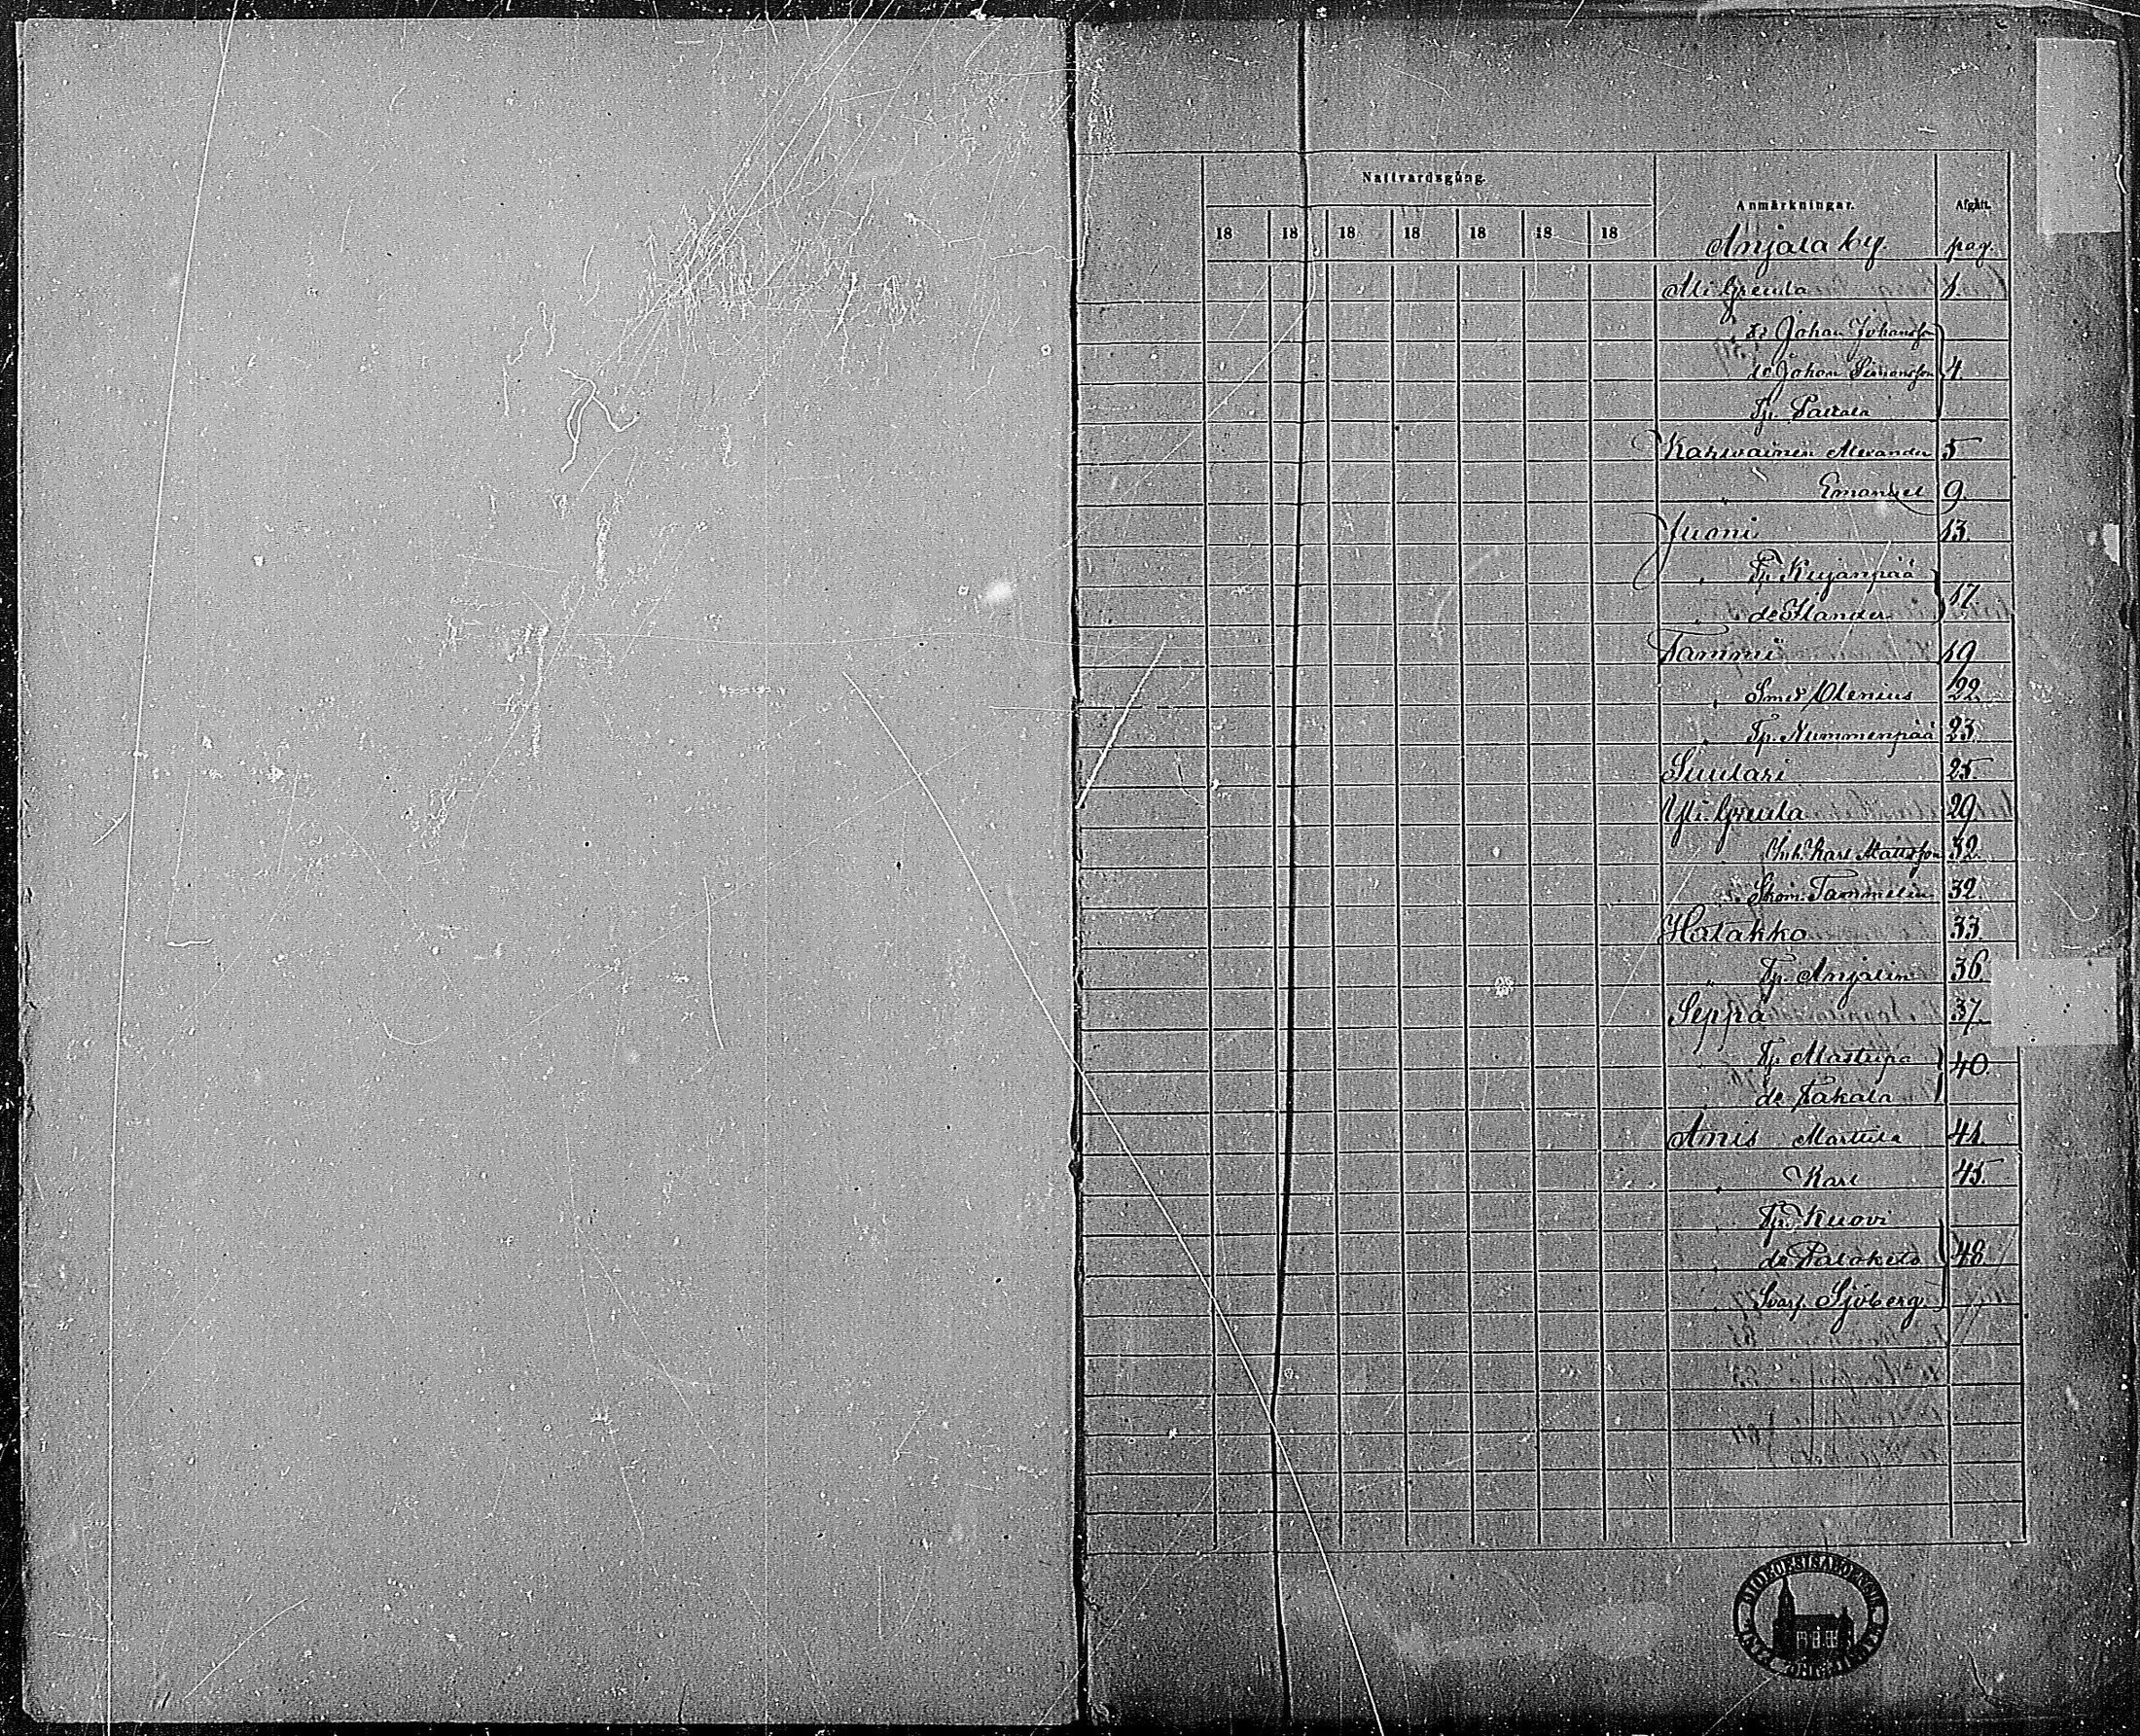 Nattvardsgång.
Anmärkningar. Afgått.
18 18 18 18 18 18 18
Anjala by. pag.
Ali Greula 1.
do Johan Johansson
do Johan Simonsson 4.
Tp. Pallala
Karvainen Alexander 5
" Emanuel 9.
Juoni 13
" Tp Kujanpää
" do Ilander 17.
Tammi 19
" Smed Alenius 22.
" Tp. Nummenpää 23.
Suutari 25.
Yli Greula 29
Inh. Karl Mattsson 32.
" Skom. Tammelin 32.
Halakko 33
" Tp. Anjalin 36
Seppä 37.
" Tp Mastupa 40.
" do Takala
Anis Marttila 41.
" Karl 45.
" Tp. Kuovi
" do Palokelo 48.
" Svarf. Sjöberg.